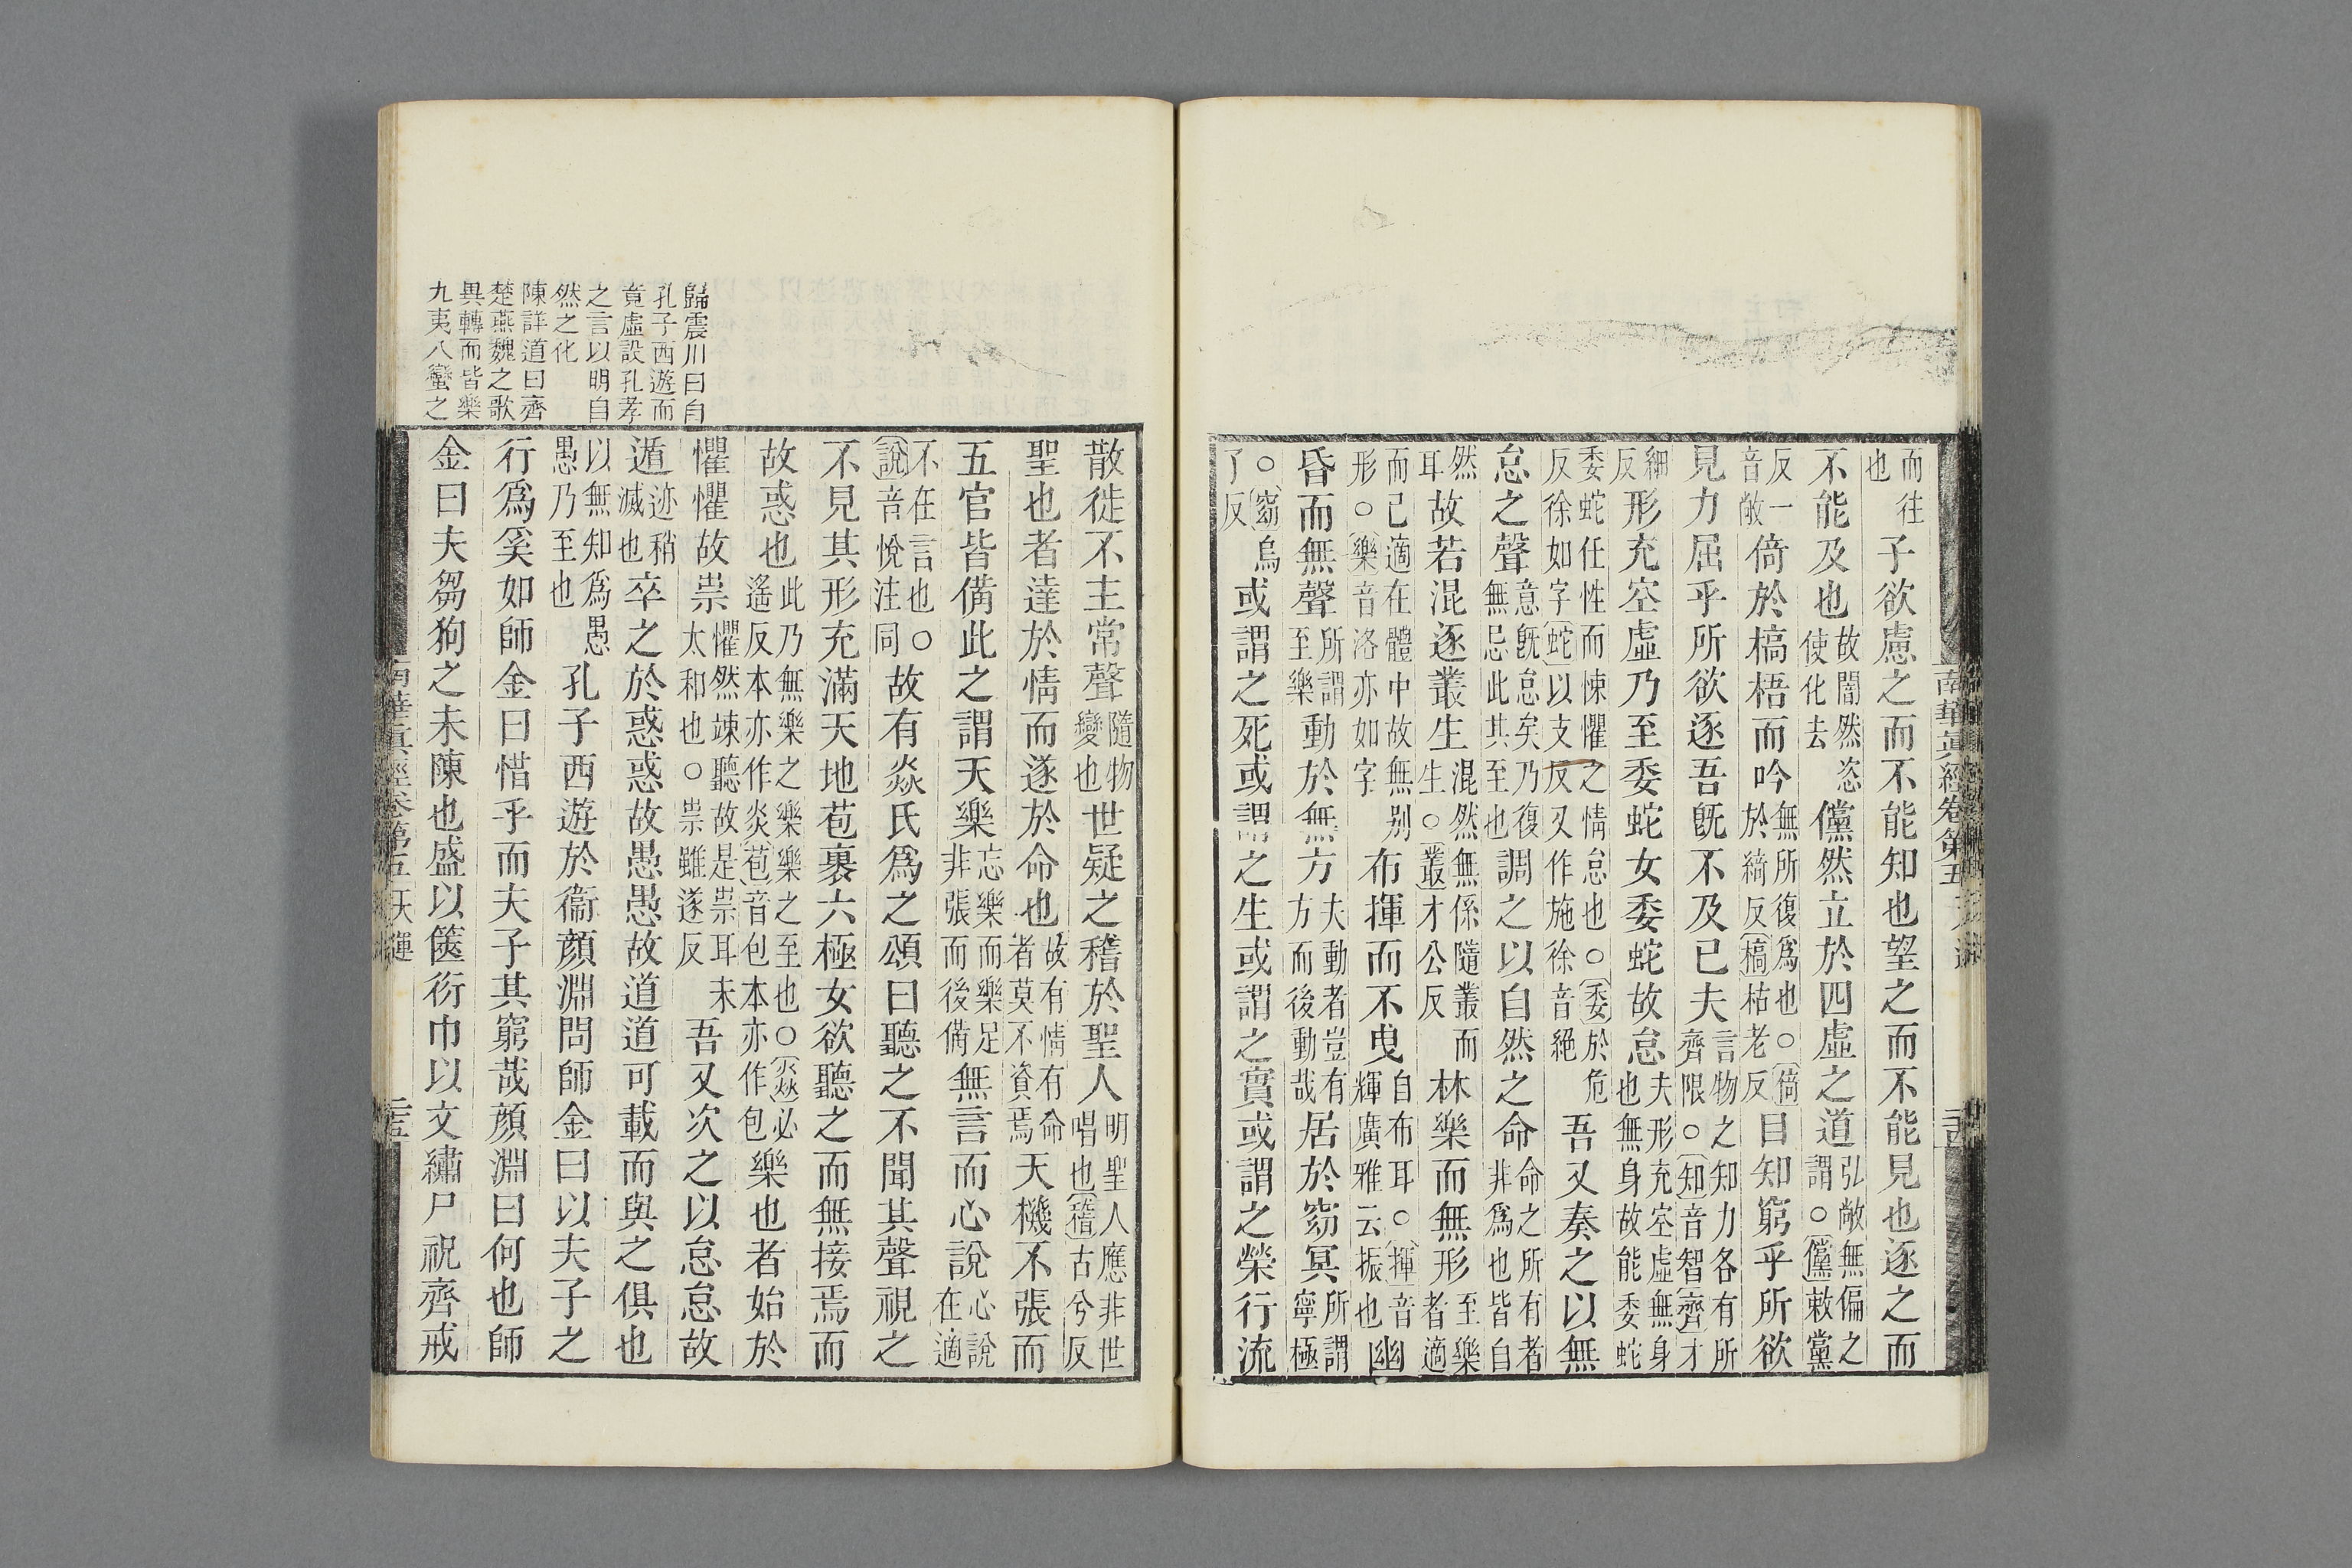 南華眞經卷第五 天運
而往也子欲慮之而不能知也望之而不能見也逐之而
不能及也故闇然恣使化去儻然立於四虛之道弘敞無偏之謂○儻敕黨
反一音敞倚於槁梧而吟無所復爲也○倚於綺反槁枯老反目知窮乎所欲
見力屈乎所欲逐吾旣不及已夫言物之知力各有所齊限○知音智齊才
細反形充空虛乃至委蛇女委蛇故怠夫形充空虛無身也無身故能委蛇
委蛇任性而悚懼之情怠也○委於危反徐如字蛇以支反又作施徐音絕吾又奏之以無
怠之聲意旣怠矣乃復無怠此其至也調之以自然之命命之所有者非爲也皆自
然耳故若混逐叢生混然無係隨叢而生○叢才公反林樂而無形至樂者適
而已適在體中故無別形○樂音洛亦如字布揮而不曳自布耳○揮音輝廣雅云振也幽
昏而無聲所謂至樂動於無方夫動者豈有方而後動哉居於窈冥所謂寧極
○窈烏了反或謂之死或謂之生或謂之實或謂之榮行流
歸震川曰自
孔子西遊而
竟虛設孔孝
之言以明自
然之化
陳詳道曰齊
楚燕魏之歌
異轉而皆樂
九夷八蠻之
散徙不主常聲隨物變也世疑之稽於聖人明聖人應非世唱也稽古兮反
聖也者達於情而遂於命也故有情有命者莫不資焉天機不張而
五官皆備此之謂天樂忘樂而樂足非張而後備無言而心說心說在適
不在言也○說音悅注同故有焱氏爲之頌曰聽之不聞其聲視之
不見其形充滿天地苞裹六極女欲聽之而無接焉而
故惑也此乃無樂之樂樂之至也○焱必遙反本亦作炎苞音包本亦作包樂也者始於
懼懼故祟懼然竦聽故是祟耳未太和也○祟雖遂反吾又次之以怠怠故
遁迹稍滅也卒之於惑惑故愚愚故道道可載而與之俱也
以無知爲愚愚乃至也孔子西遊於衞顏淵問師金曰以夫子之
行爲奚如師金曰惜乎而夫子其窮哉顏淵曰何也師
金曰夫芻狗之未陳也盛以篋衍巾以文繡尸祝齊戒
南華眞經卷第五 天運 二十五